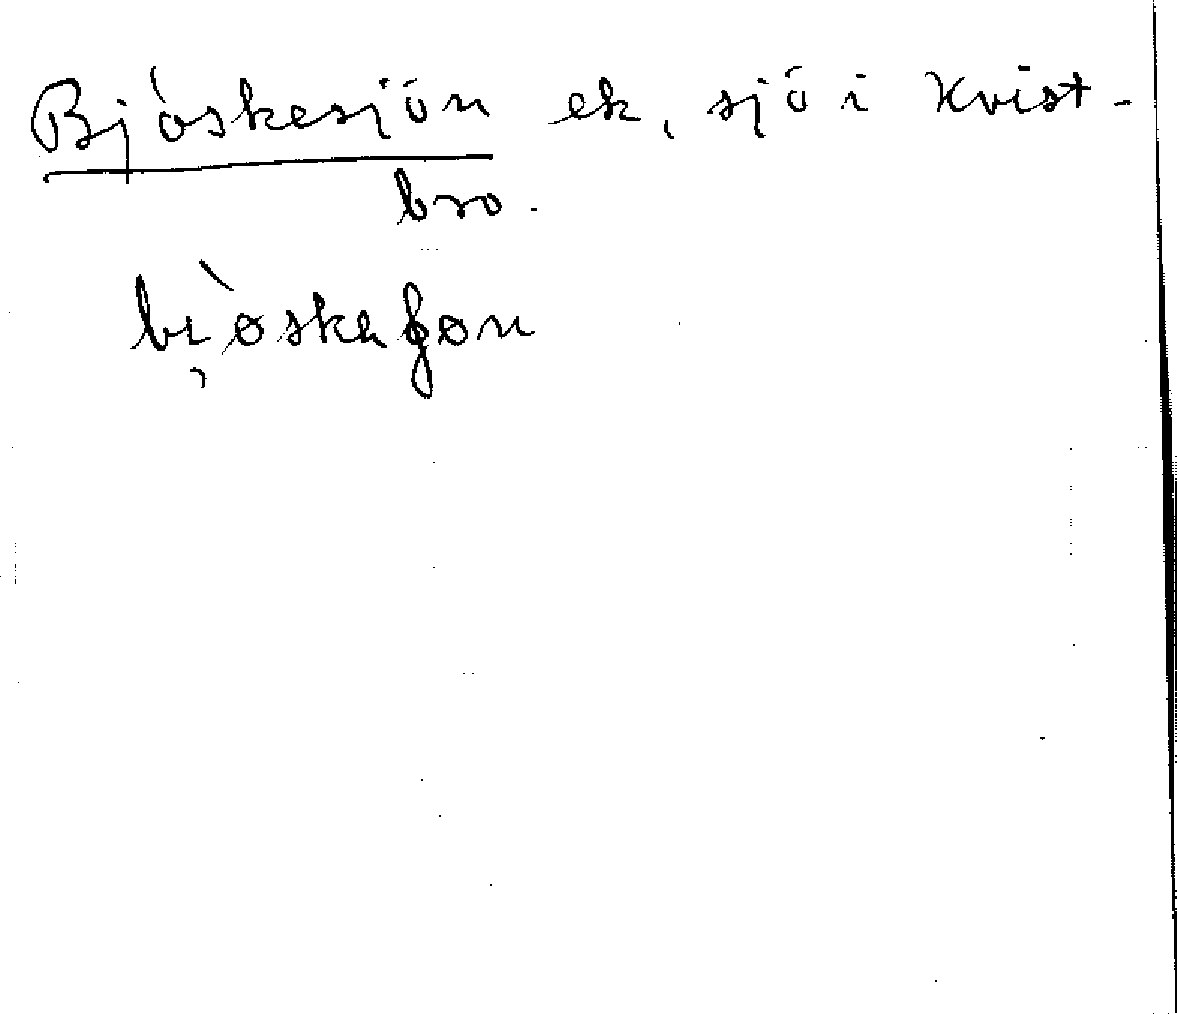 Bjöskesjön ek, sjö i Kvist-
bro.
bi̯òskaʃon